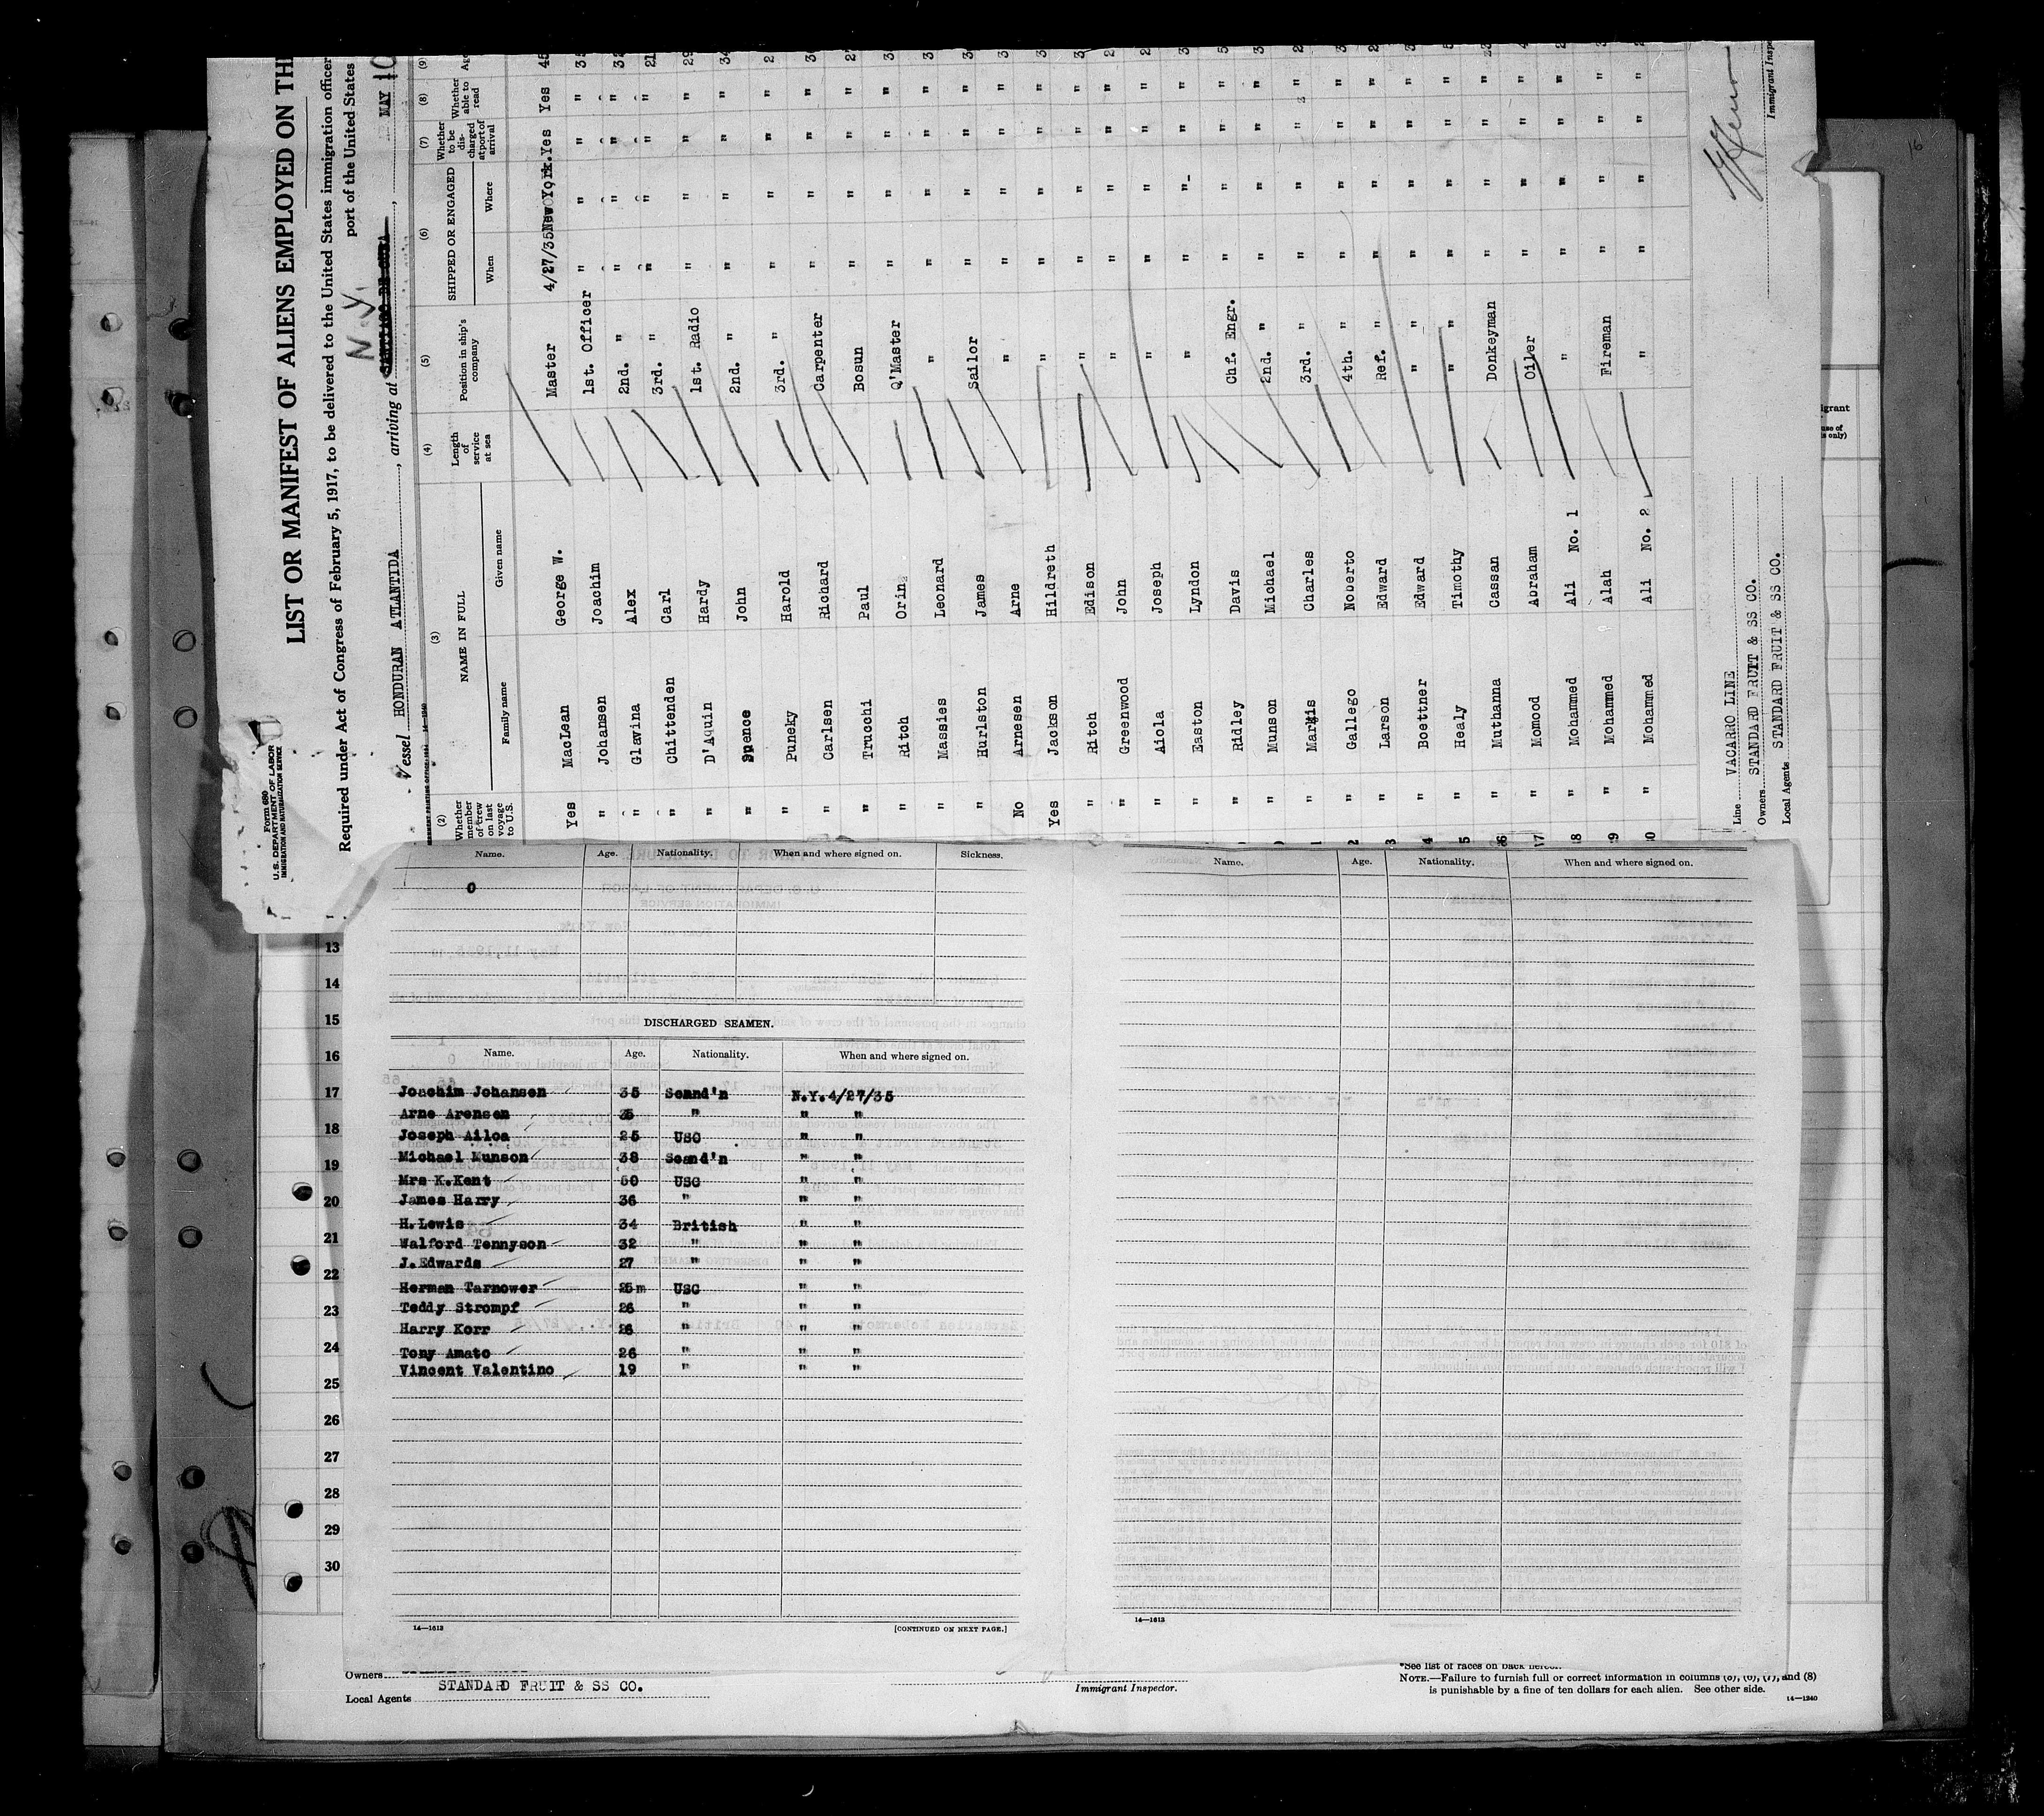 Form 680
U.S. DEPARTMENT OF LABOR
IMMIGRATION AND NATURALIZATION SERVICE
LIST OR MANIFEST OF ALIENS EMPLOYED ON TH
Required under Act of Congress of February 5, 1917, to be delivered to the United States immigration officer
port of the United States
N.Y.
Vessel HONDURAN ATLANTIDA, arriving at SANTIAGO DE CUBA, MAY 10
(2) (3) (4) (5) (6) (7) (8) (9)
Whether member of crew on last voyage to U.S. NAME IN FULL Family name Given name Length of service at sea Position in ship's company SHIPPED OR ENGAGED When Where Whether to be discharged at port of arrival Whether able to read Ag
Yes MacLean George W. Master 4/27/35 New York. Yes Yes 45
" Johansen Joachim 1st. Officer " " " " 35
" Glavina Alex 2nd. " " " " "
" Chittenden Carl 3rd. " " " " " 21
" D'Aquin Hardy 1st. Radio " " " " 29
" Spence John 2nd. " " " " " 34
" Puneky Harold 3rd. " " " " " 2
" Carlsen Richard Carpenter " " " " 3
" Trucchi Paul Bosun " " " " 2
" Ritch Orin Q'Master " " " " 3
" Massies Leonard " " " " " 3
" Hurlston James Sailor " " " " 3
No Arnesen Arne " " " " " 3
Yes Jackson Hildreth " " " " " 3
" Ritch Edison " " " " " 3
" Greenwood John " " " " " 2
" Aiola Joseph " " " " " 2
" Easton Lyndon " " " " " 3
" Ridley Davis Chf. Engr. " " " " 5
" Munson Michael 2nd. " " " " " 3
" Margis Charles 3rd. " " " " " 2
" Gallego Noberto 4th. " " " " " 3
" Larson Edward Ref. " " " " " 2
" Boettner Edward " " " " " 3
" Healy Timothy " " " " " 5
" Muthanna Cassan Donkeyman " " " " 2
" Momood Abraham Oiler " " " " 4
" Mohammed Ali No. 1 " " " " " 2
" Mohammed Alah Fireman " " " " 3
" Mohammed Ali No. 2 " " " " " 2
Line VACARO LINE
Owners STANDARD FRUIT & SS CO.
Local Agents STANDARD FRUIT & SS CO.
Immigrant Inspe
Name. Age. Nationality. When and where signed on. Sickness.
0
DISCHARGED SEAMEN.
Name. Age. Nationality. When and where signed on.
Joachim Johansen 35 Scand'n N.Y.4/27/35
Arne Arensen 35 " " "
Joseph Ailoa 25 USC " "
Michael Munson 38 Scand'n " "
Mrs K.Kent 50 USC " "
James Harry 36 " " "
H.Lewis 34 British " "
Walford Tennyson 32 " " "
J.Edwards 27 " " "
Herman Tarnower 25m USC " "
Teddy Strompf 26 " " "
Harry Korr 26 " " "
Tony Amato 26 " " "
Vincent Valentino 19 " " "
14—1613
[CONTINUED ON NEXT PAGE.]
Name. Age. Nationality. When and where signed on.
14—1613
13
14
15
16
17
18
19
20
21
22
23
24
25
26
27
28
29
30
Owners
Local Agents STANDARD FRUIT & SS CO.
Immigrant Inspector.
*See list of races on back hereof.
NOTE.—Failure to furnish full or correct information in columns (5), (6), (7), and (8)
is punishable by a fine of ten dollars for each alien. See other side.
14—1240
16